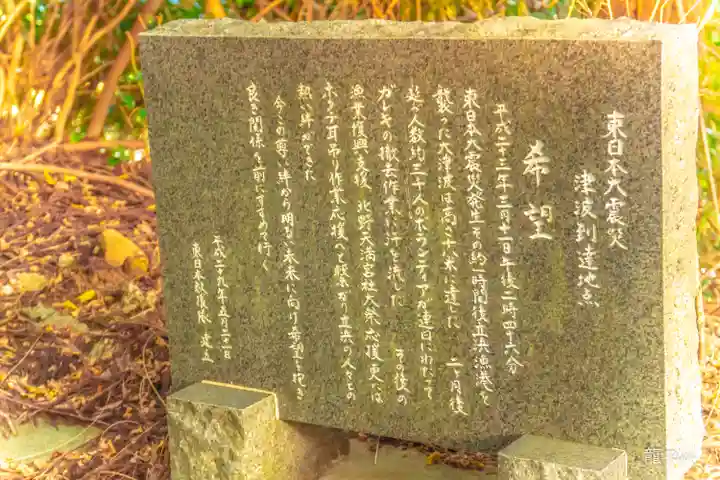 東日本大震災
津波到達地点
希望
平成二十三年三月十一日午後二時四十六分
東日本大震災発生 その約一時間後 漁港を
襲った大津波は高さ十八米に達した 二ヶ月後
延べ人数約三千人のボランティアが連日にわたって
ガレキの撤去作業に汗を流した その後の
漁業復興支援 北野天満宮社大祭応援 更には
ホタテ耳吊り作業応援へと繋がり 共の人々との
熱い絆ができた
今この尊い絆から明るい未来に向け希望を抱き
良き関係を前にすすめて行く
平成二十九年五月二十一日
東日本 建立
龍